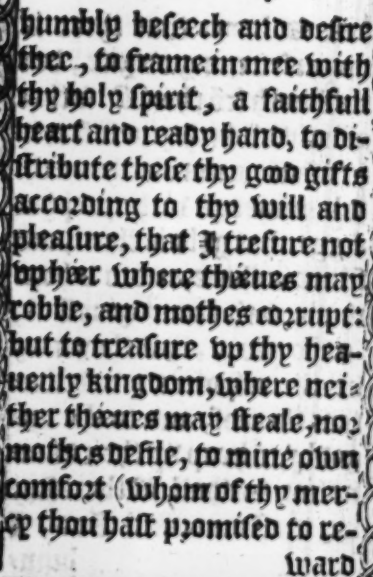 humbly beseech and desire
thee, to frame in mee with
thy holy spirit, a faithfull
heart and ready hand, to di-
stribute these thy good gifts
according to thy will and
pleasure, that I tresure not
vp heer where theeues may
robbe, and mothes corrupt:
but to treasure vp thy hea-
uenly kingdom, where nei-
ther theeues may steale, nor
mothes defile, to mine own
comfort (whom of thy mer-
cy thou hast promised to re-
ward